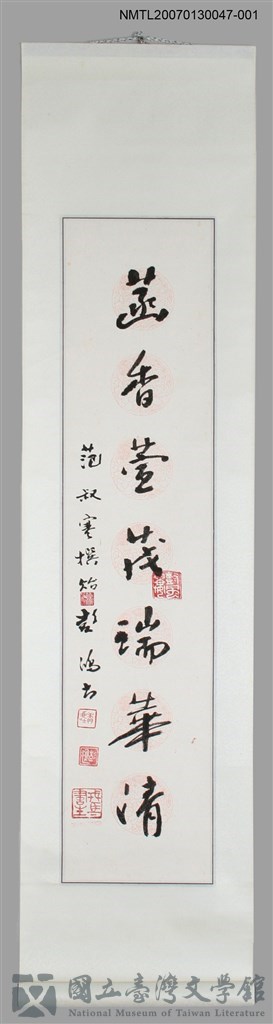 NMTL20070130047-001
香萱茂瑞華清
范叔寒撰句彭鴻書
國立臺灣文學館
National Museum of Taiwan Literature